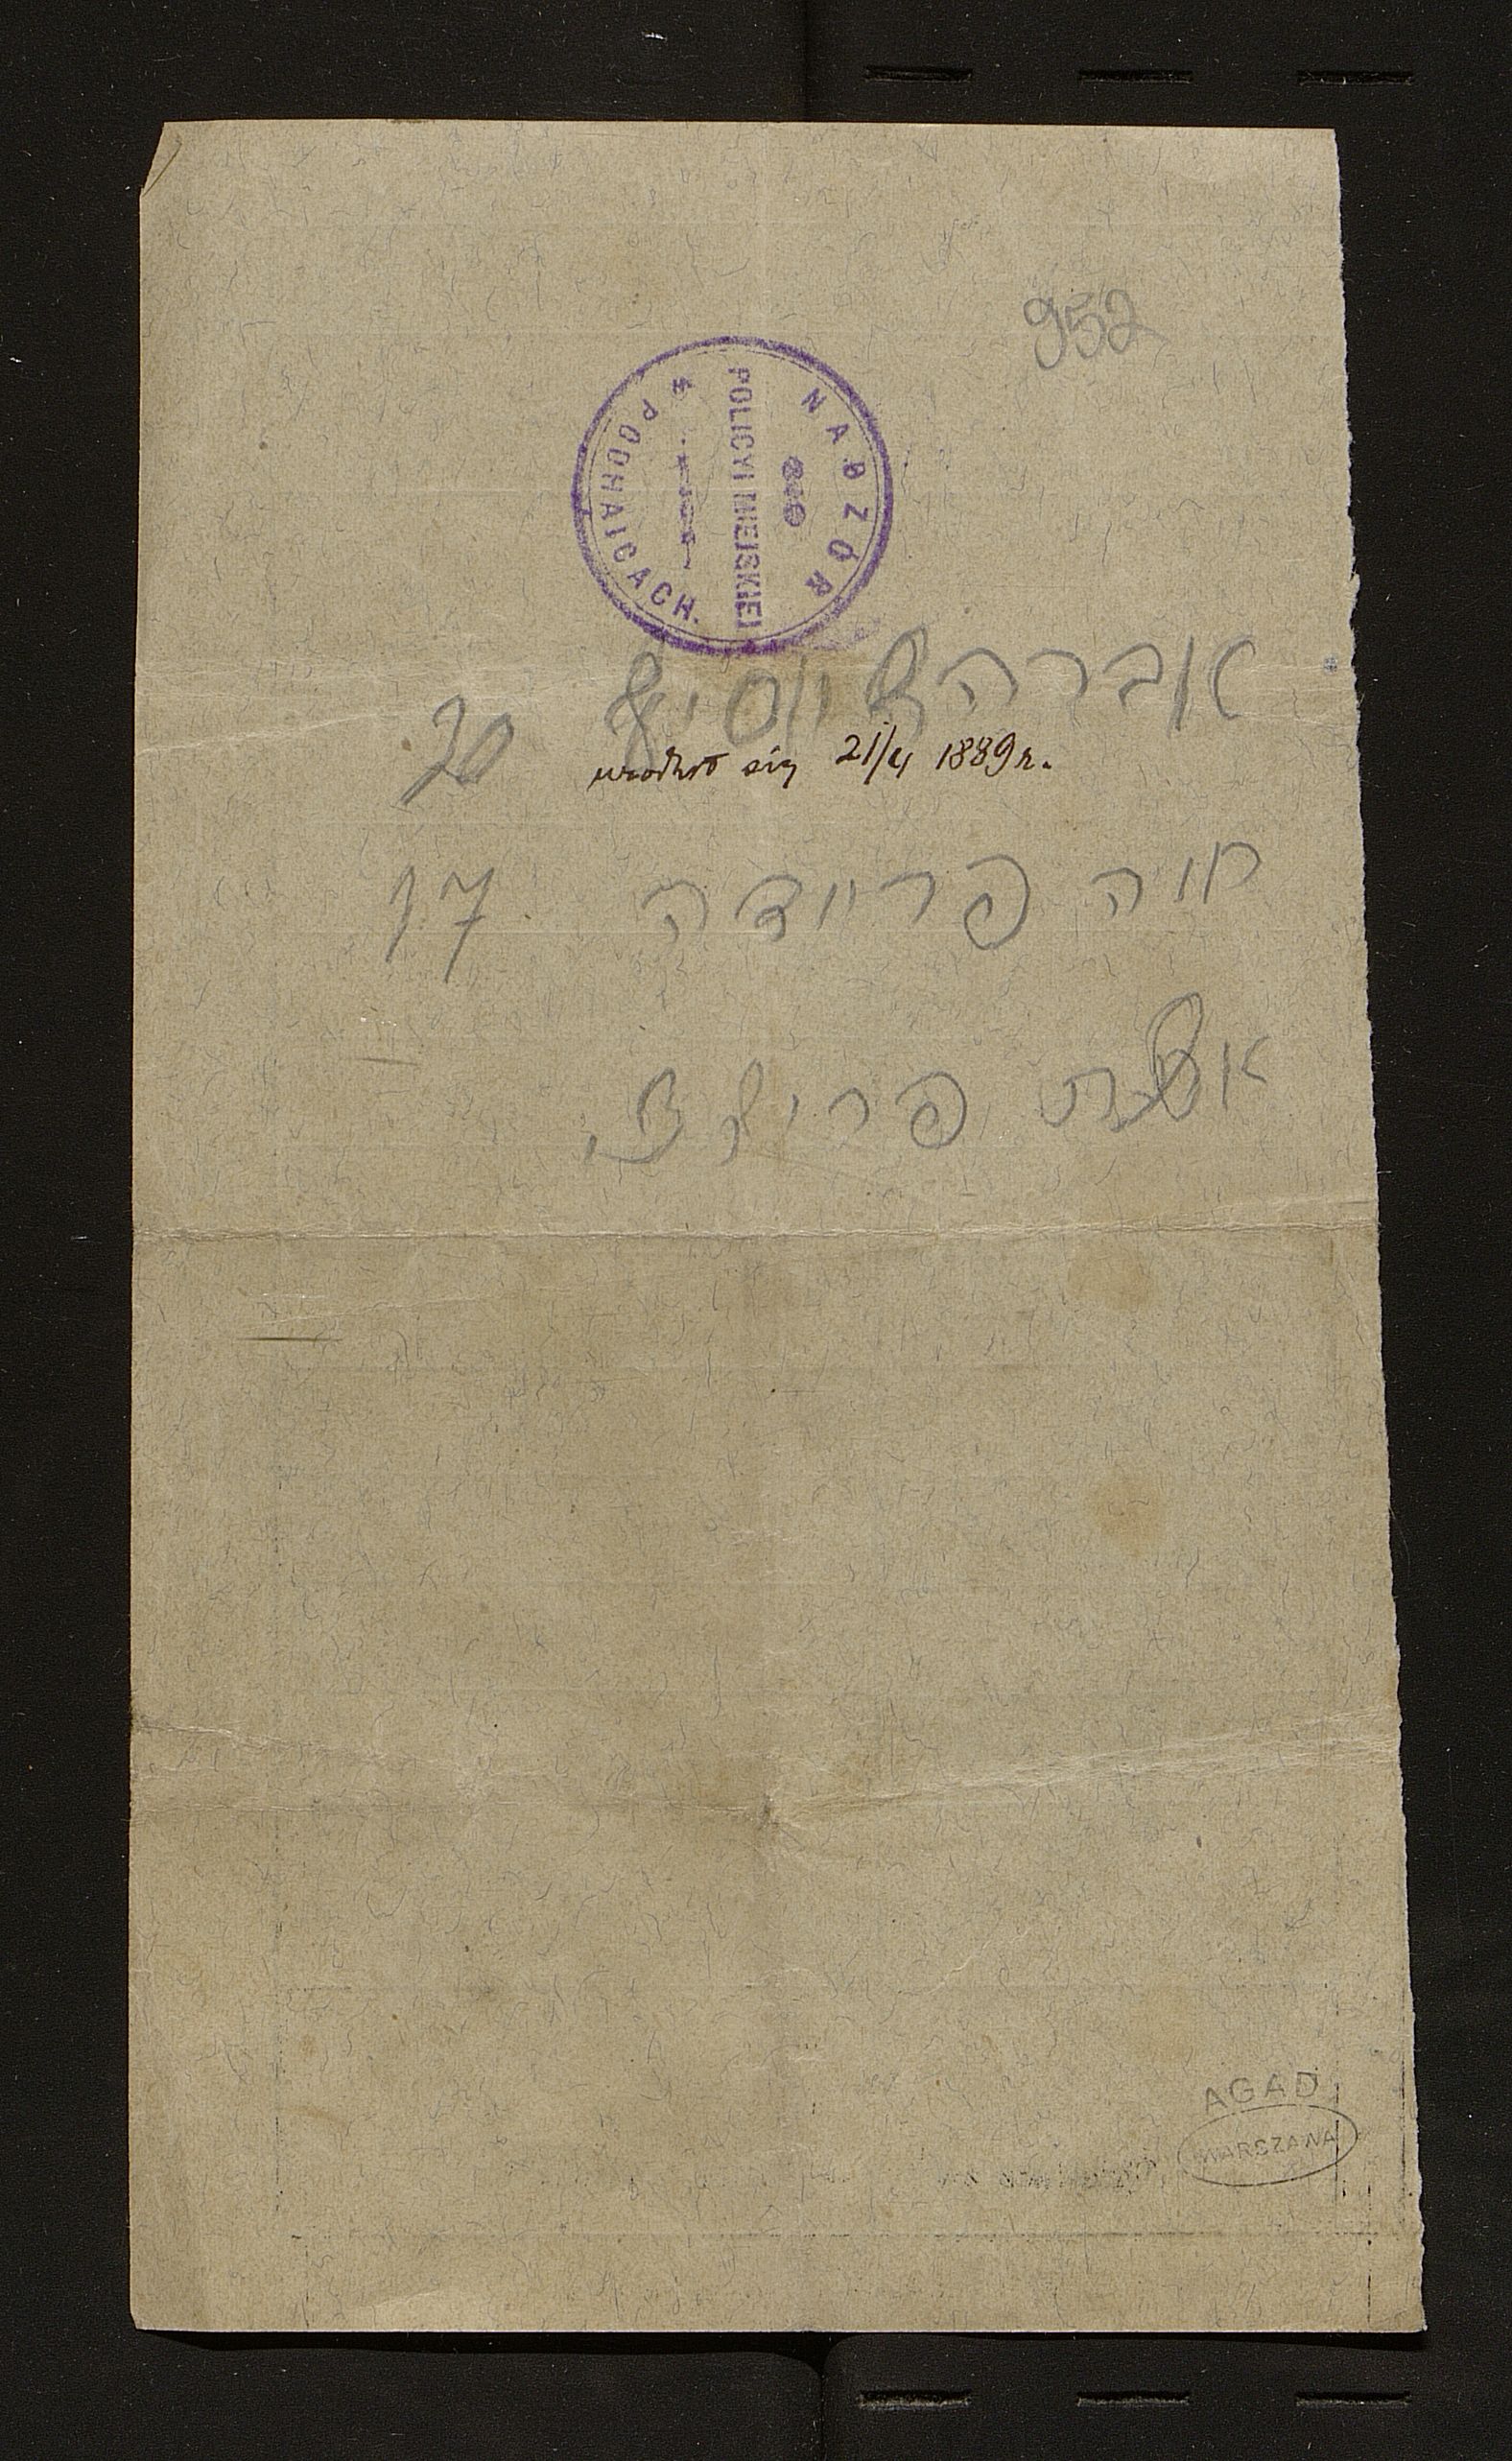 952
NADZÓR
POLICYI MIEJSKIEJ
PODHAJCACH.
אברהם יוסיף 20
urodził się 21/4 1889 r.
חיה פריידה 17
אסתר
AGAD
WARSZAWA